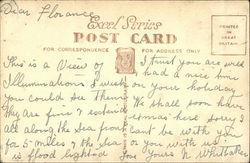 Dear Florance
Excel Series
POST CARD
FOR CORRESPONDENCE
FOR ADDRESS ONLY
PRINTED
IN
GREAT
BRITAIN
This is a View of
Illuminations I wish
you could see them
They are fine & extend
all along the Sea front
for 5 miles & the Sea
is flood lighted
I trust you are well
had a nice time
on your holiday
We shall soon have
xmas here sorry I
cant be with you
or you with us
love Yours N.